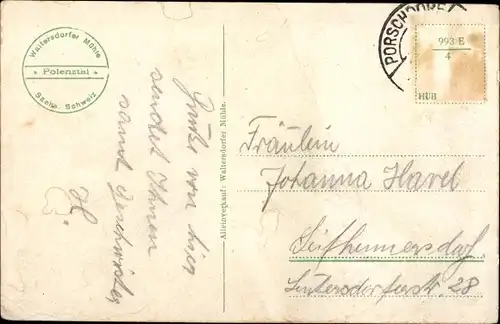 Waltersdorfer Mühle
* Polenztal *
Sächs. Schweiz
PORSCHDORF
993 E
4
HUB
Grüße von hier
sendet Ihnen
samt Geschwister
H.
Alleinverkauf: Waltersdorfer Mühle.
Fräulein
Johanna Havel
Seifhennersdorf
28